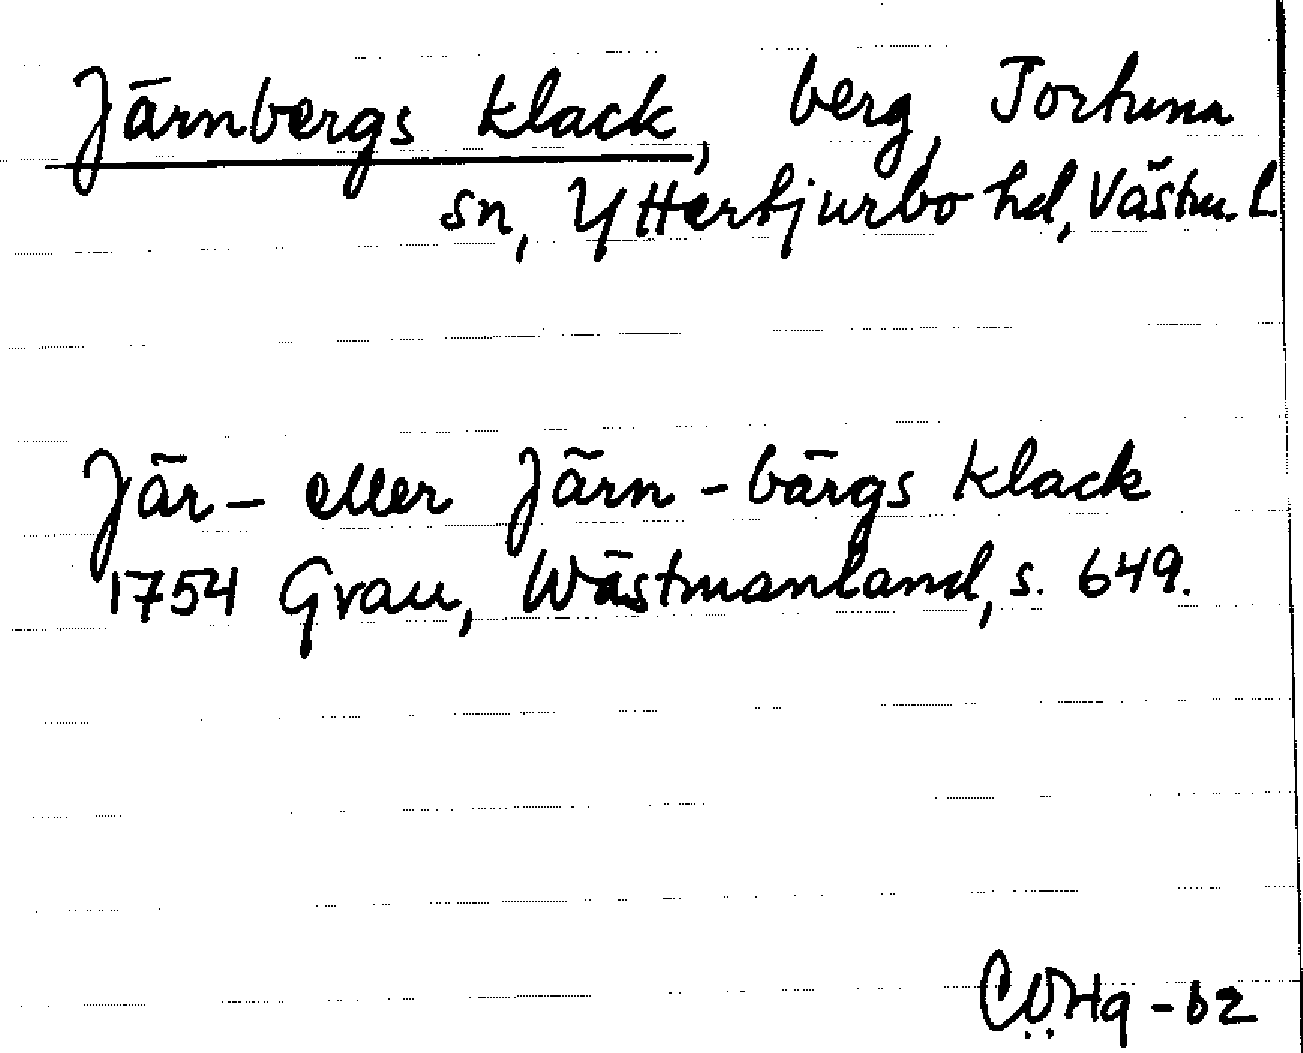 Järnbergs klack, berg, Tortuna
sn, Yttertjurbo hd, Västm. l.
Jär- eller Järn-bärgs klack
1754 Grau, Wästmanland, s. 649.